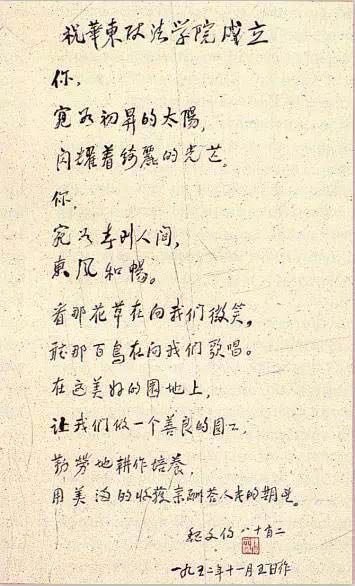 祝華東政法学院成立
你,
宛若初昇的太陽,
闪耀着綺麗的光芒。
你,
宛若春到人间,
東风和暢。
看那花草在向我们微笑,
听那百鸟在向我们歌唱。
在这美好的園地上,
让我们做一个善良的园工,
勤劳地耕作培養,
用美满的收穫来酬答人民的期望。
魏文伯 八十有二
一九五二年十一月五日作